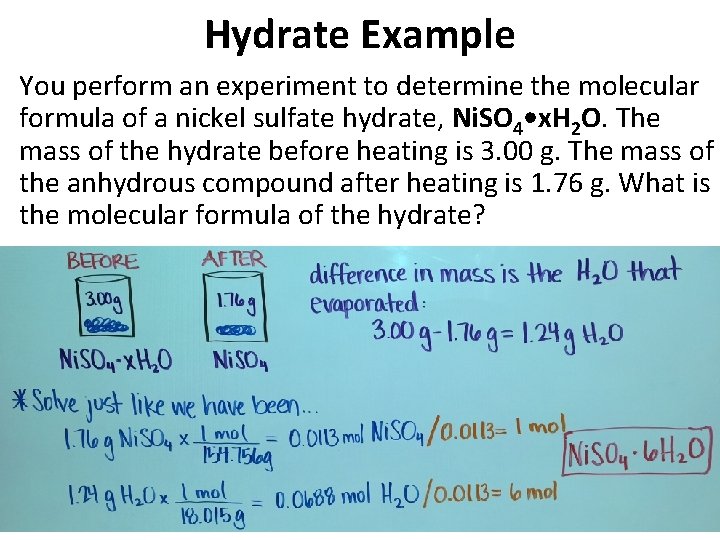 Hydrate Example
You perform an experiment to determine the molecular
formula of a nickel sulfate hydrate, Ni.SO 4•x.H2O. The
mass of the hydrate before heating is 3. 00 g. The mass of
the anhydrous compound after heating is 1. 76 g. What is
the molecular formula of the hydrate?
BEFORE AFTER
3.00g 1.76 g
NiSO₄·xH₂O NiSO₄
difference in mass is the H₂O that
evaporated:
3.00 g - 1.76 g = 1.24 g H₂O
* Solve just like we have been...
1.76 g NiSO₄ x 1 mol / 154.756g = 0.0113 mol NiSO₄ / 0.0113 = 1 mol
1.24 g H₂O x 1 mol / 18.015 g = 0.0688 mol H₂O / 0.0113 = 6 mol
NiSO₄·6H₂O